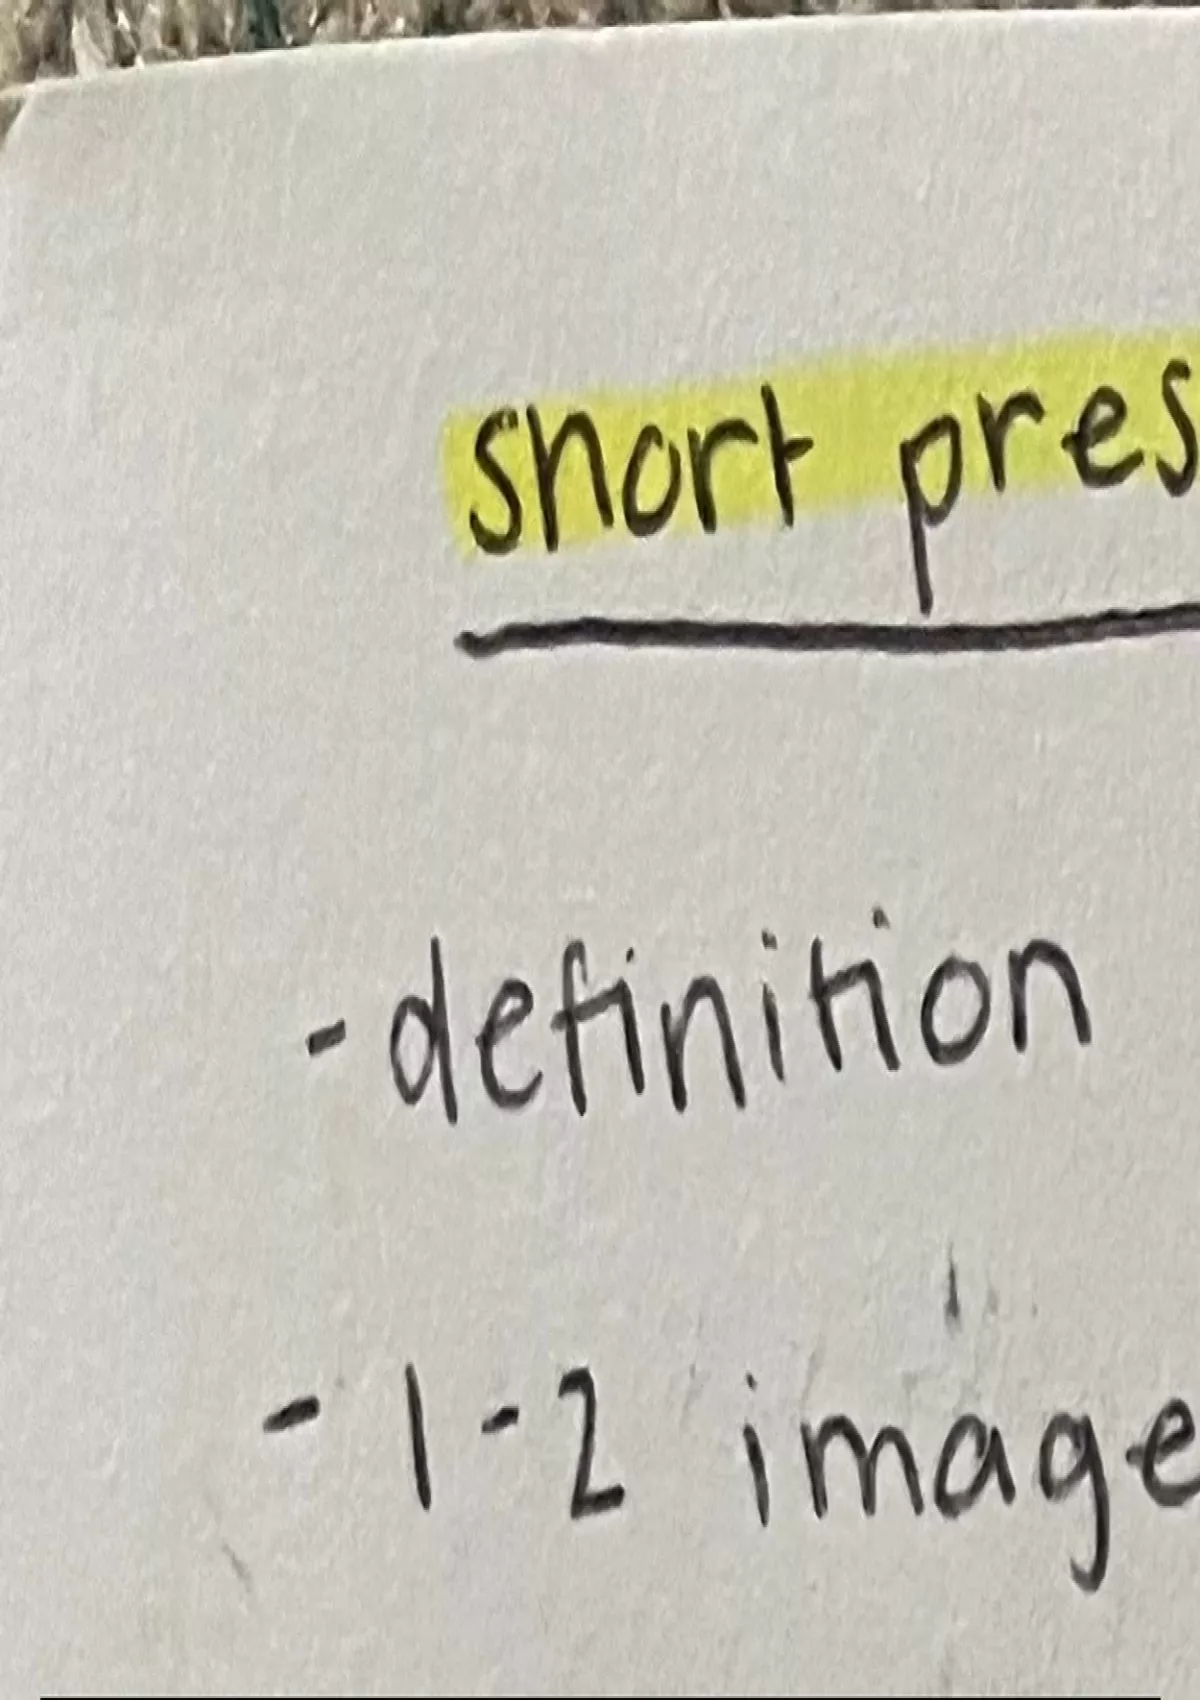 short pres
- definition
- 1-2 image